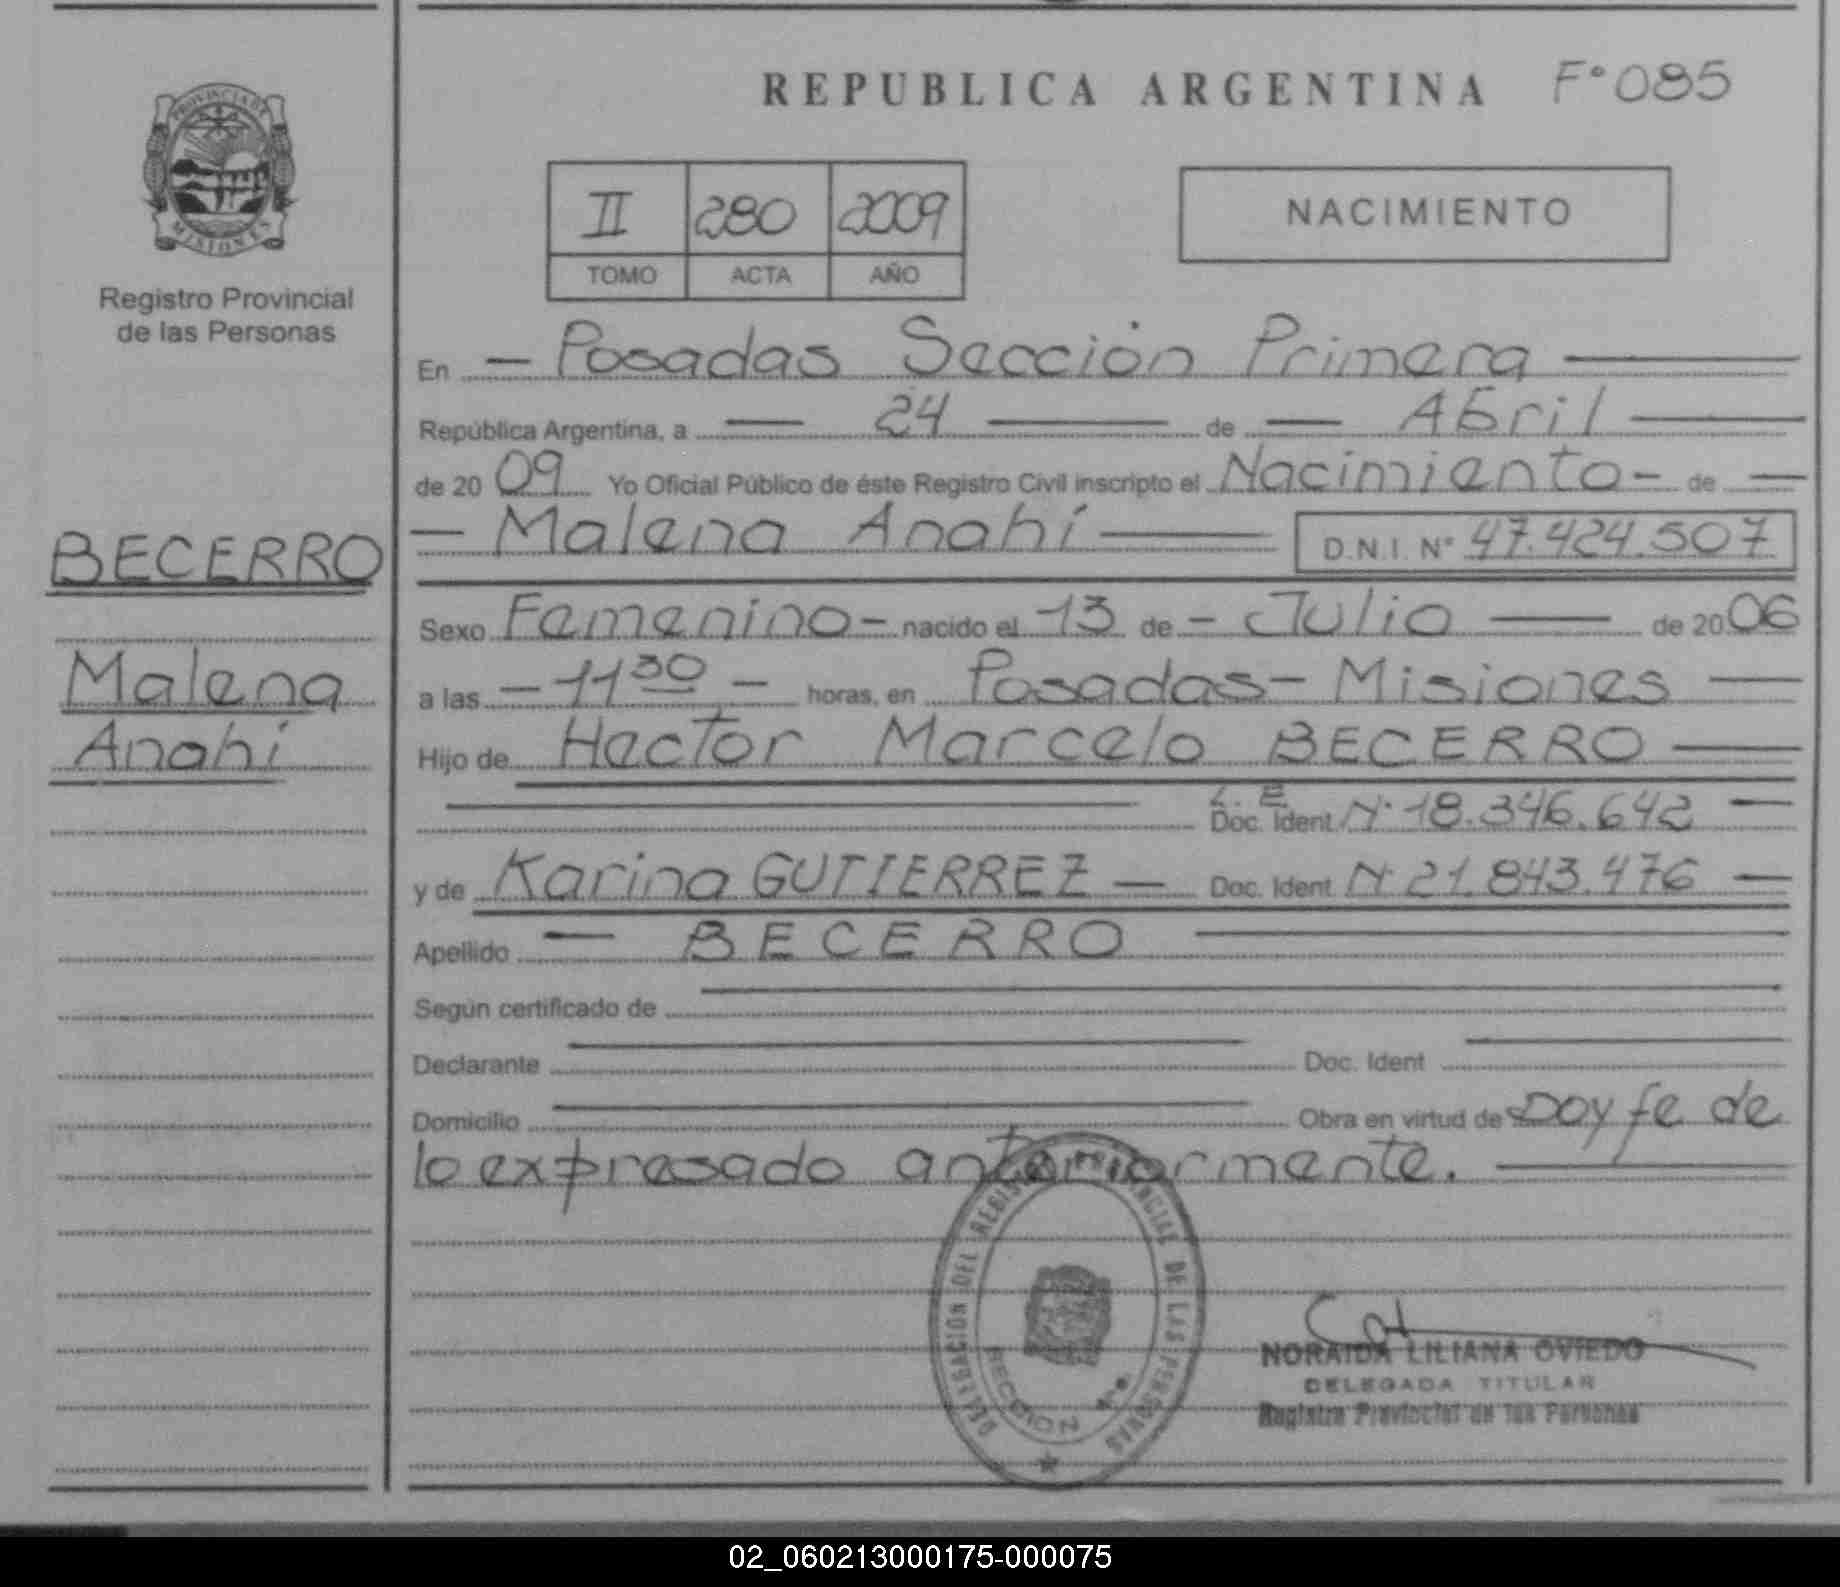 REPUBLICA ARGENTINA F° 085
PROVINCIA DE
MISIONES
Registro Provincial
de las Personas
II 280 2009
TOMO ACTA AÑO
NACIMIENTO
En — Posadas Sección Primera —
República Argentina, a — 24 — de — Abril —
de 20 09 Yo Oficial Público de éste Registro Civil inscripto el Nacimiento - de —
BECERRO
— Malena Anahí — D.N.I. N° 47.424.507
Sexo Femenino - nacido el 13 de - Julio — de 20 06
Malena
a las — 11 30 — horas, en Posadas - Misiones —
Anahí
Hijo de Hector Marcelo BECERRO —
L. E.
Doc. Ident N° 18.346.642 —
y de Karina GUTIERREZ — Doc. Ident N° 21.843.476 —
Apellido — BECERRO —
Según certificado de —
Declarante — Doc. Ident —
Domicilio — Obra en virtud de Doy fe de
lo expresado anteriormente. —
DELEGACION DEL REGISTRO PROVINCIAL DE LAS PERSONAS
SECCION 1ra.
NORAIDA LILIANA OVIEDO
DELEGADA TITULAR
Registro Provincial de las Personas
02_060213000175-000075